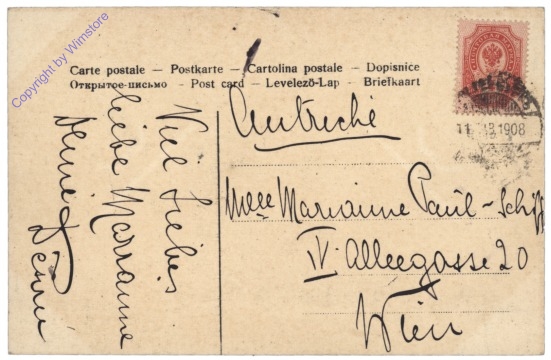 Copyright by Wimstore
Carte postale – Postkarte – Cartolina postale – Dopisnice
Открытое письмо – Post card – Levelező-Lap – Briefkaart
Autriche
Mlle Marianne Paul-Schiff
IV Alleegasse 20
Wien
Viel Liebes
liebe Marianne
Deine
1908